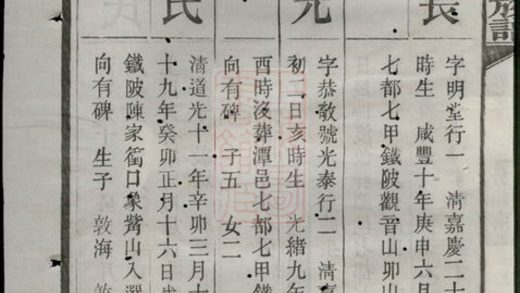 譜
長
字明堂行一 清嘉慶二十
時生 咸豐十年庚申六月
七都七甲鐵陂觀音山卯山
字恭敬號光泰行二 清
初二日亥時生 光緒九年
酉時沒葬潭邑七都七甲鐵
向有碑 子五 女二
氏
清道光十一年辛卯三月十
十九年癸卯正月十六日
鐵陂陳家衝口象嘴山入選
向有碑 生子 敦海 敦